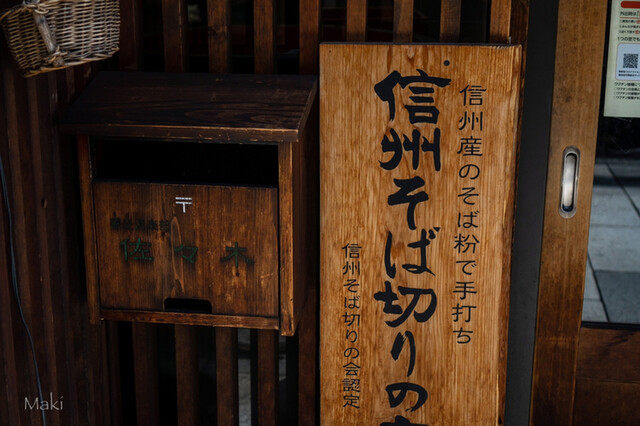 〒
佐々木
信州産のそば粉で手打ち
信州そば切りの
信州そば切りの会認定
Maki